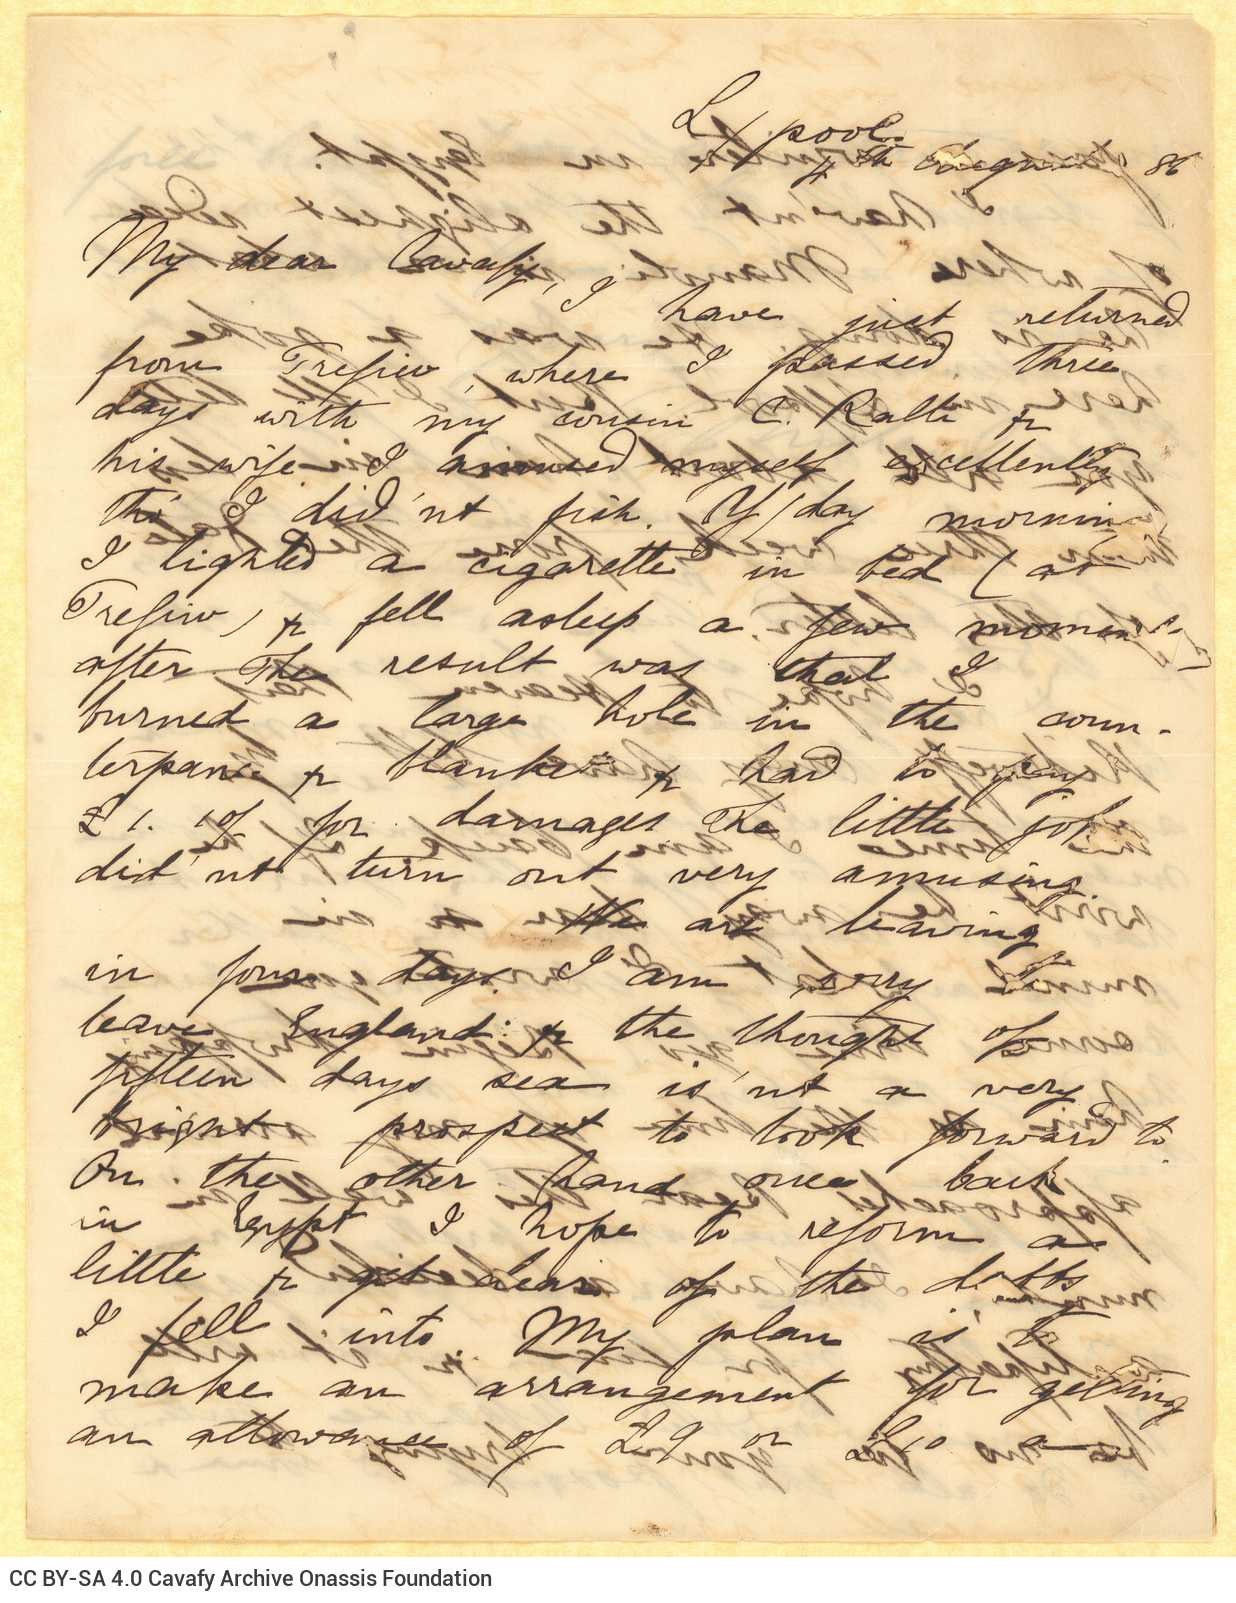 L/pool
4th August 86
My dear Cavafy,
I have just returned
from Trefriw, where I passed three
days with my cousin C. Ralli &
his wife. I amused myself excellently
tho' I did'nt fish. Y/day morning
I lighted a cigarette in bed (at
Trefriw) & fell asleep a few moments
after. The result was that I
burned a large hole in the coun-
terpane & blanket & had to pay
£1. for damages. The little job
did'nt turn out very amusing.
We are leaving
in four days. I am sorry to
leave England: & the thought of
fifteen days sea is'nt a very
bright prospect to look forward to.
On the other hand once back
in Egypt I hope to reform a
little & get clear of the debts
I fell into. My plan is to
make an arrangement for getting
an allowance of £9 or £10 a
CC BY-SA 4.0 Cavafy Archive Onassis Foundation